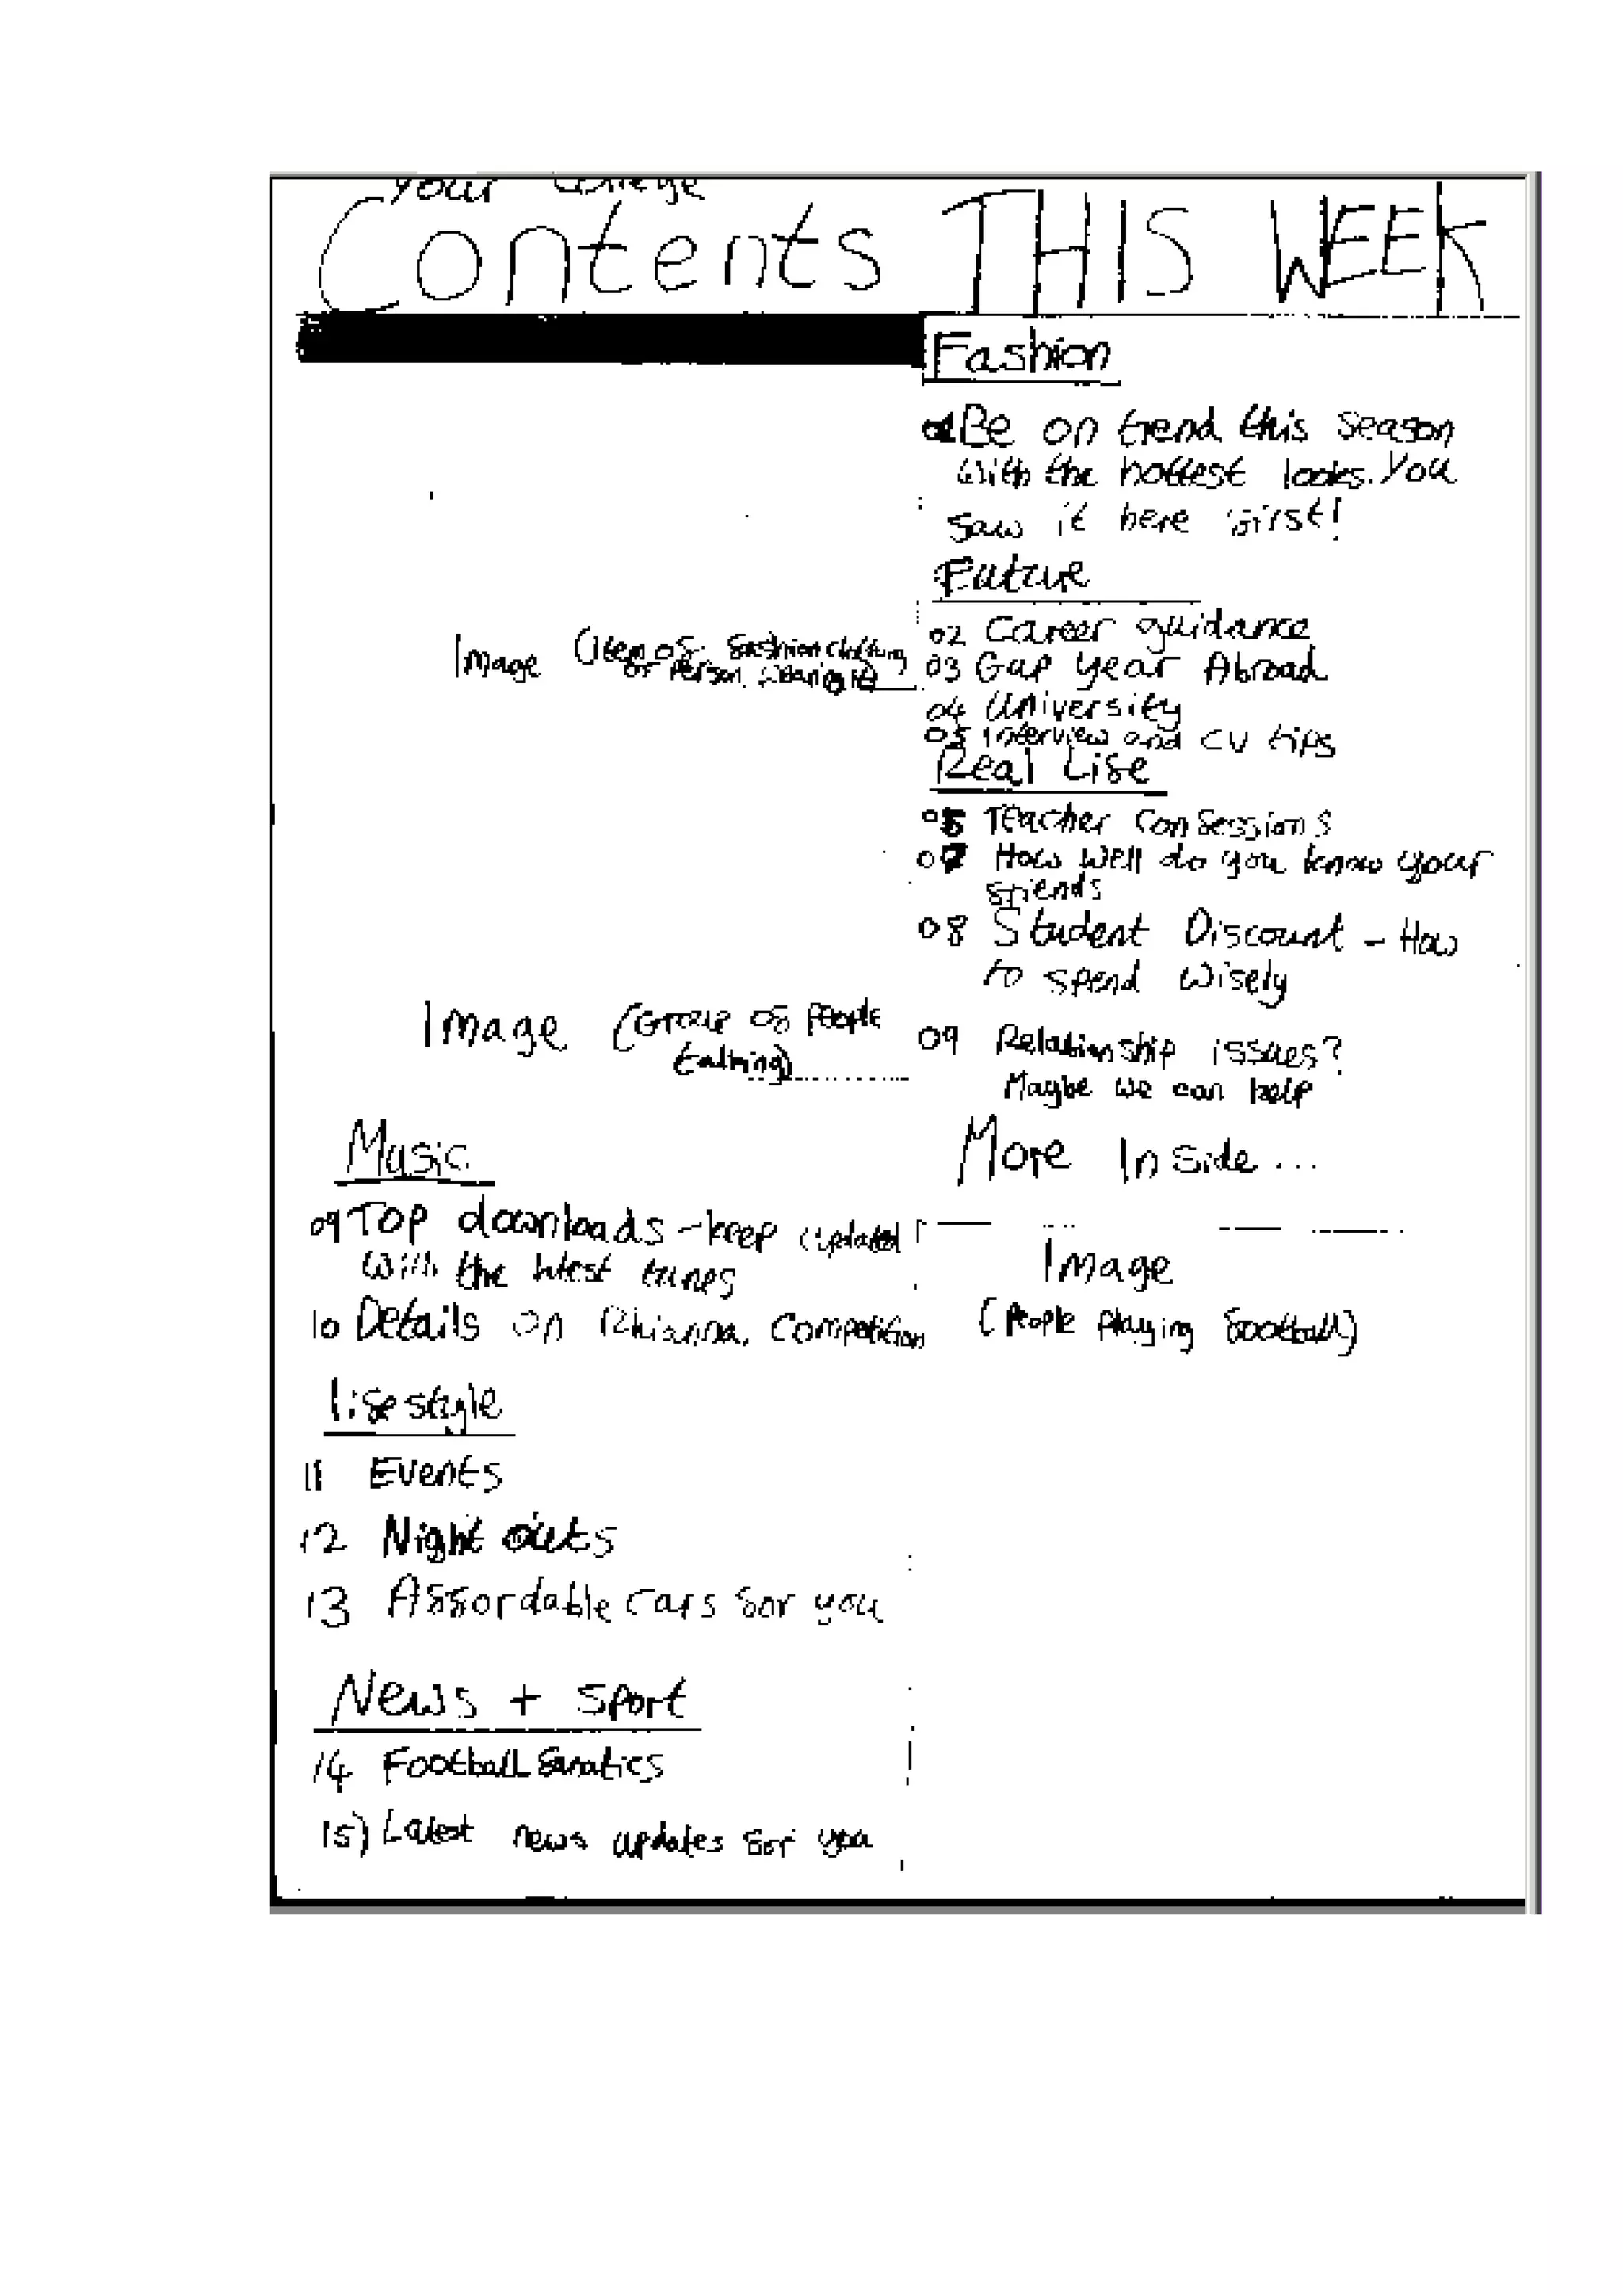 Your College
Contents THIS WEEK
Fashion
01 Be on trend this season
with the hottest looks. You
saw it here first!
Future
02 Career guidance
03 Gap year Abroad
04 University
05 Interview and CV tips
Real Life
06 Teacher Confessions
07 How well do you know your
friends
08 Student Discount - How
to spend wisely
09 Relationship issues?
Maybe we can help
More Inside...
Image (Item of fashion clothing
or Person wearing it)
Image (Group of people
talking)
Music
09 Top downloads - keep updated
with the latest tunes
10 Details on Rhianna Competition
Lifestyle
11 Events
12 Night outs
13 Affordable cars for you
News + Sport
14 Football fanatics
15) Latest news updates for you
Image
(People playing football)